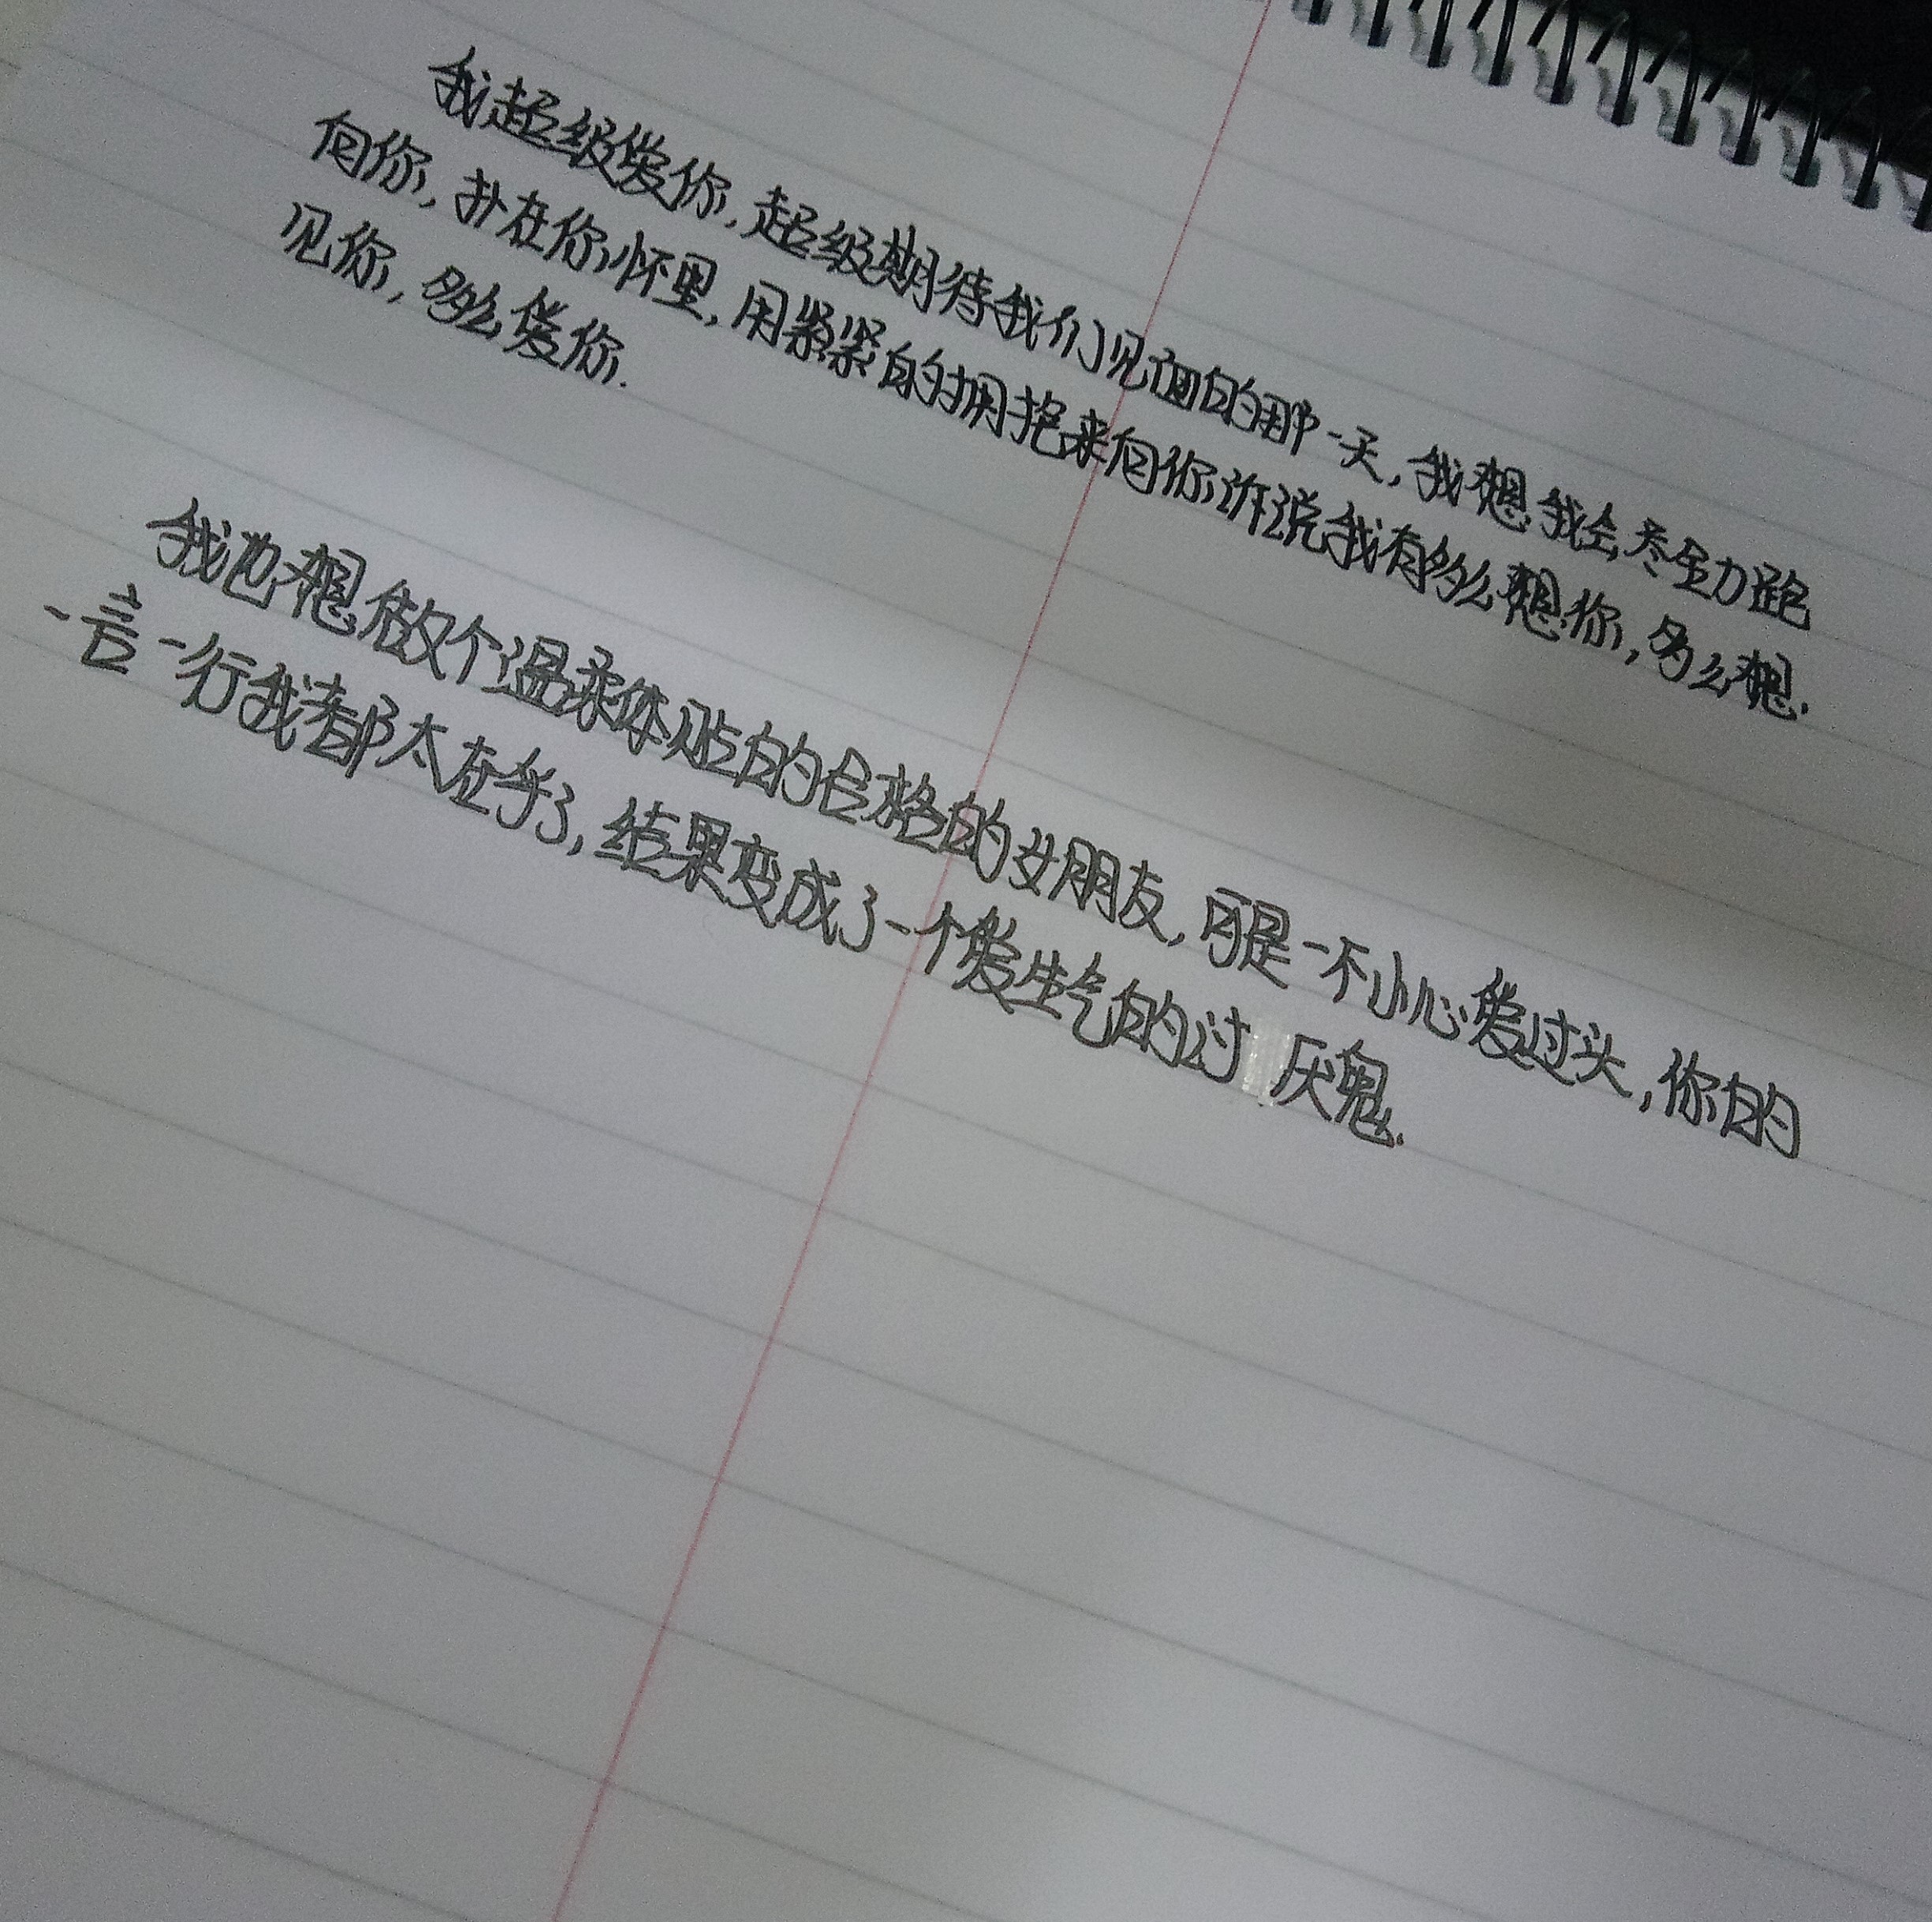 我超级爱你,超级期待我们见面的那一天,我想我会尽全力跑
向你,扑在你怀里,用紧紧的拥抱来向你诉说我有多么想你,多么想
见你,多么爱你.
我也想做个温柔体贴的合格的女朋友,可是一不小心爱过头,你的
一言一行我都太在乎了,结果变成了一个爱生气的讨厌鬼.